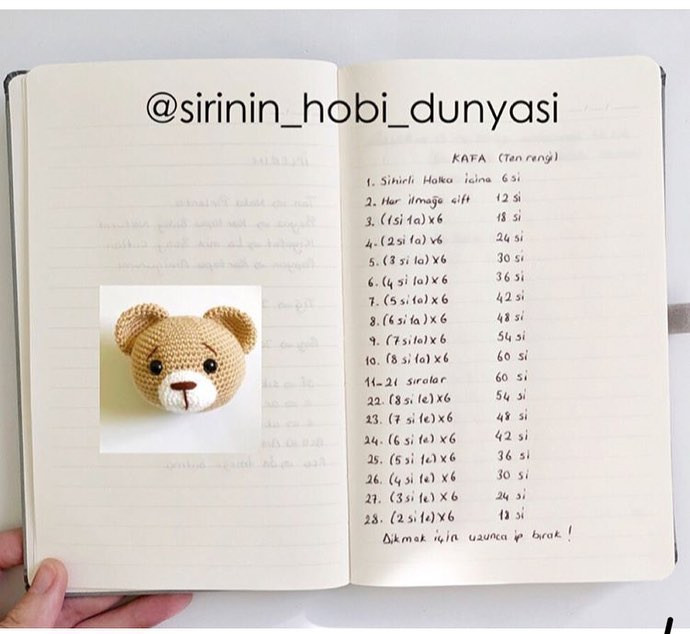 @sirinin_hobi_dunyasi
KAFA (Ten rengi)
1. Sihirli Halka içine 6 si
2. Her ilmağa çift 12 si
3. (1si 1a)x6 18 si
4. (2si 1a)x6 24 si
5. (3 si 1a)x6 30 si
6. (4 si 1a)x6 36 si
7. (5 si 1a)x6 42 si
8. (6 si 1a)x6 48 si
9. (7 si 1a)x6 54 si
10. (8 si 1a)x6 60 si
11-21 sıralar 60 si
22. (8 si 1e)x6 54 si
23. (7 si 1e)x6 48 si
24. (6 si 1e) x6 42 si
25. (5 si 1e) x6 36 si
26. (4 si 1e) x6 30 si
27. (3 si 1e) x6 24 si
28. (2 si 1e)x6 18 si
Dikmak için uzunca ip bırak!